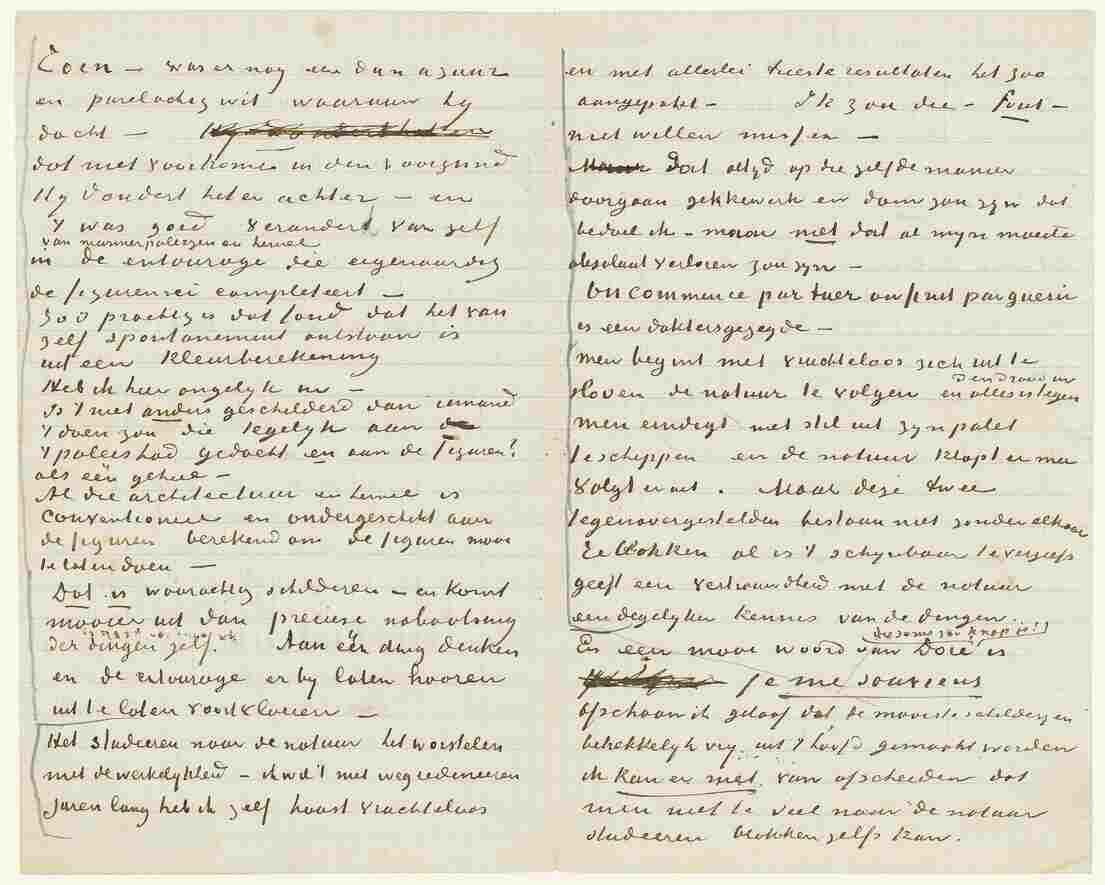 Toen – was er nog een dun azuur
en parelachtig wit waaraan hij
dacht –
dat niet voorkomt in den voorgrond
Hij dondert het er achter – en
't was goed veranderd van zelf
van marmerpaleizen en hemel
in de entourage die eigenaardig
de figurenrei completeert –
zoo prachtig is dat fond dat het van
zelf spontanement ontstaan is
uit een kleurberekening
Heb ik hier ongelijk in –
Is 't niet anders geschilderd dan iemand
't doen zou die tegelijk aan de
't paleis had gedacht en aan de figuren?
als één geheel –
Al die architectuur en hemel is
conventioneel en ondergeschikt aan
de figuren berekend om de figuren mooi
te laten doen –
Dat is waarachtig schilderen – en komt
mooier uit dan preciese nabootsing
der dingen zelf. Aan één ding denken
en de entourage er bij laten hooren
uit te laten voortvloeien –
Het studeeren naar de natuur het worstelen
met de werkelijkheid – ik wil 't niet wegredeneeren
Jaren lang heb ik zelf haast vruchteloos
en met allerlei trieste resultaten het zoo
aangepakt – Ik zou die – fout –
niet willen missen –
Maar dat altijd op die zelfde manier
doorgaan gekkewerk en dom zou zijn dat
bedoel ik – maar niet dat al mijn moeite
absoluut verloren zou zijn –
On commence par tuer on finit par guerir
is een doktersgezegde –
men begint met vruchteloos zich uit te
sloven de natuur te volgen en alles is tegen
den draad in
men eindigt met stil uit zijn palet
te scheppen en de natuur klopt er mee
volgt er uit. Maar deze twee
tegenovergestelden bestaan niet zonder elkaar
't blokken al is 't schijnbaar te vergeefs
geeft een vertrouwdheid met de natuur
een degelijker kennis van de dingen.
(die soms zoo knap is!)
En een mooi woord van Doré is
je me souviens
ofschoon ik geloof dat de mooiste schilderijen
betrekkelijk vrij uit 't hoofd gemaakt worden
ik kan er niet van afscheiden dat
men niet te veel naar de natuur
studeeren blokken zelfs kan.